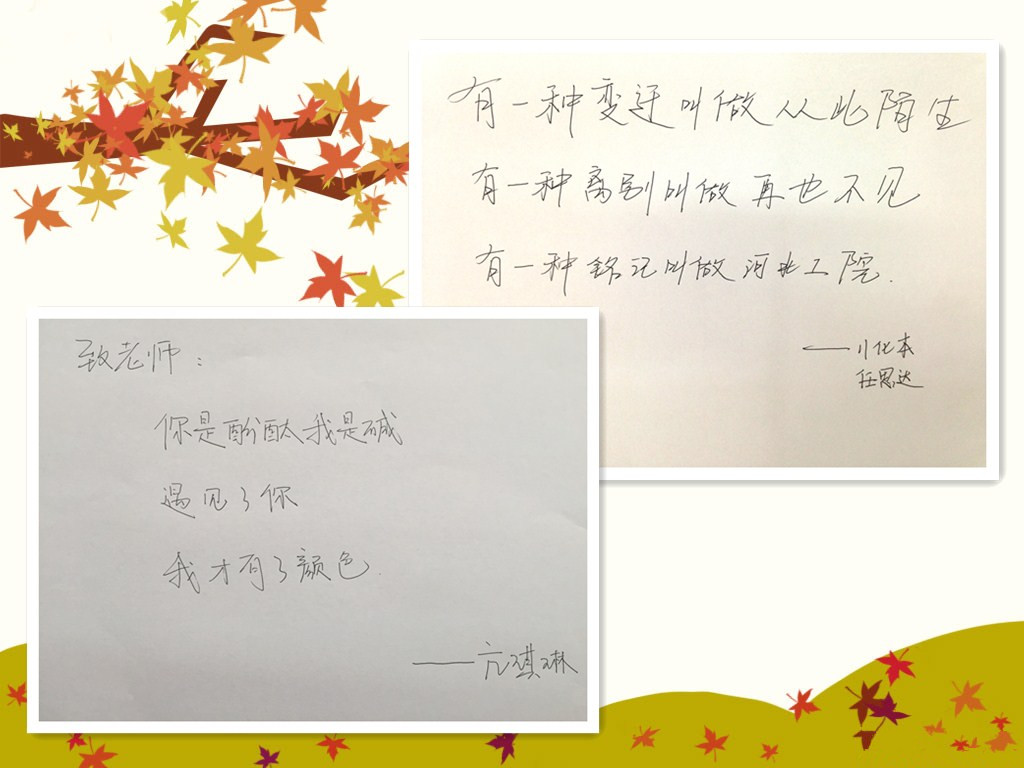 有一种变迁叫做从此陌生
有一种离别叫做再也不见
有一种铭记叫做河北工院.
——11化本
任思达
致老师：
你是酚酞我是碱
遇见了你
我才有了颜色.
——亢琪琳